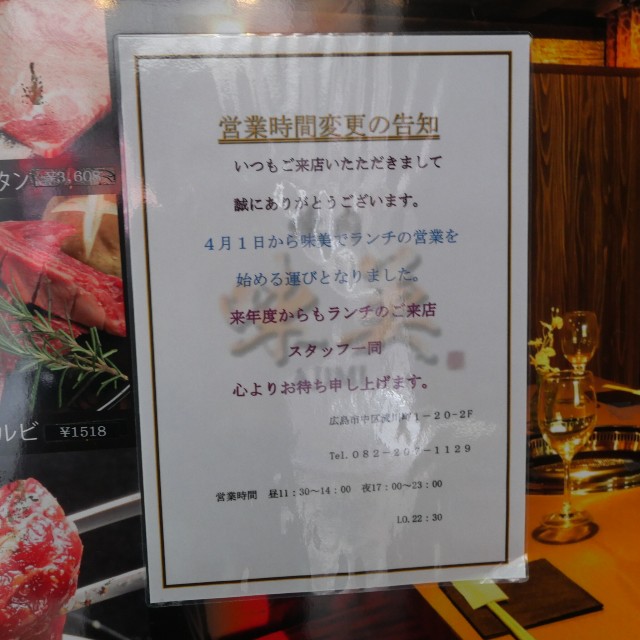 営業時間変更の告知
いつもご来店いたただきまして
誠にありがとうございます。
4月1日から味美でランチの営業を
始める運びとなりました。
来年度からもランチのご来店
スタッフ一同
心よりお待ち申し上げます。
広島市中区 1-20-2F
Tel. 082-207-1129
営業時間 昼11:30~14:00 夜17:00~23:00
LO.22:30
タン ¥3,608
ルビ ¥1518